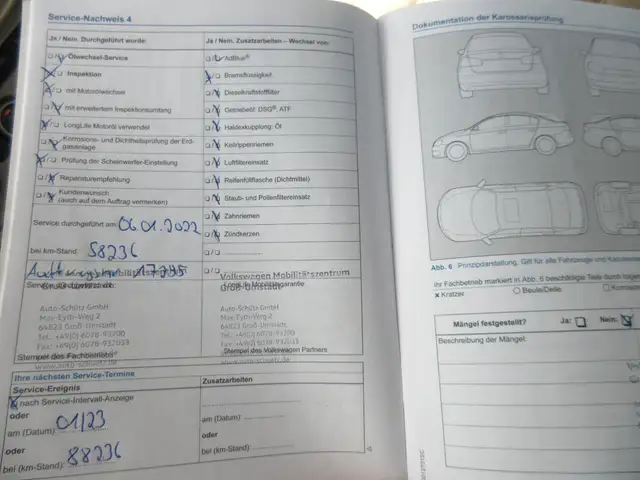 Service-Nachweis 4
Ja / Nein. Durchgeführt wurde:
Ölwechsel-Service
Inspektion
mit Motorölwechsel
mit erweitertem Inspektionsumfang
LongLife Motoröl verwendet
Korrosions- und Dichtheitsprüfung der Erd-
gasanlage
Prüfung der Scheinwerfer-Einstellung
Reparaturempfehlung
Kundenwunsch
(auch auf dem Auftrag vermerken)
Service durchgeführt am: 06.01.2022
bei km-Stand: 58236
Ja / Nein. Zusatzarbeiten – Wechsel von:
AdBlue®
Bremsflüssigkeit
Dieselkraftstofffilter
Getriebeöl: DSG®, ATF
Haldexkupplung: Öl
Keilrippenriemen
Luftfiltereinsatz
Reifenfüllflasche (Dichtmittel)
Staub- und Pollenfiltereinsatz
Zahnriemen
Zündkerzen
Auto-Schütz GmbH
Max-Eyth-Weg 2
64823 Groß-Umstadt
Tel. +49(0) 6078-93700
Stempel des Fachbetriebs
Volkswagen Mobilitätszentrum
Groß-Umstadt
Auto-Schütz GmbH
Max-Eyth-Weg 2
64823 Groß-Umstadt
Stempel des Volkswagen Partners
Ihre nächsten Service-Termine
Service-Ereignis
nach Service-Intervall-Anzeige
oder
am (Datum): 01/23
oder
bei (km-Stand): 88236
Zusatzarbeiten
am (Datum):
oder
bei (km-Stand):
Dokumentation der Karosserieprüfung
Abb. 6 Prinzipdarstellung. Gilt für alle Fahrzeuge und
Ihr Fachbetrieb markiert in Abb. 6 beschädigte Teile durch
x Kratzer
Beule/Delle
Mängel festgestellt? Ja: Nein:
Beschreibung der Mängel: